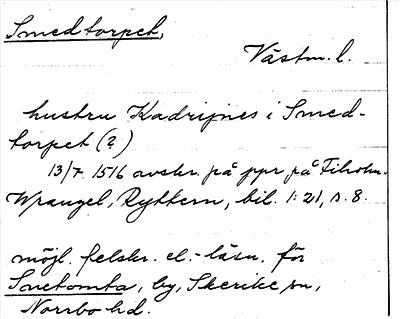 Smedtorpet,
Västm. l.
hustru Kadrijnes i Smed-
torpet (?)
13/7 1516 avskr. på ppr på Tidholm.
Wrangel, Ryttern, bil. 1:21, s. 8.
möjl. felskr. el. -läsn. för
Smetomta, by, Skerike sn,
Norrbo hd.